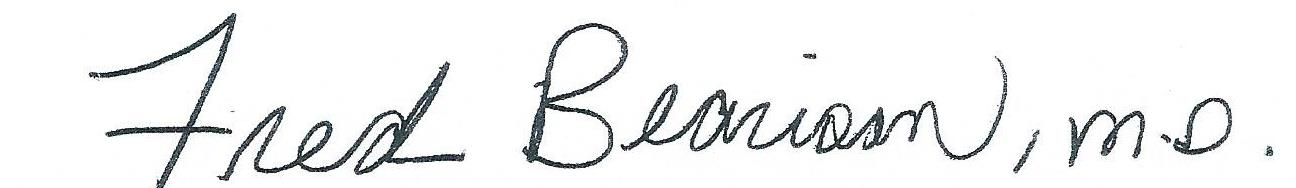 Fred Bearison, M.D.